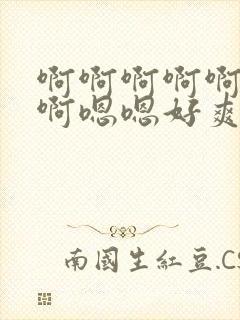 啊啊啊啊啊
啊嗯嗯好爽
南國生紅豆.CS